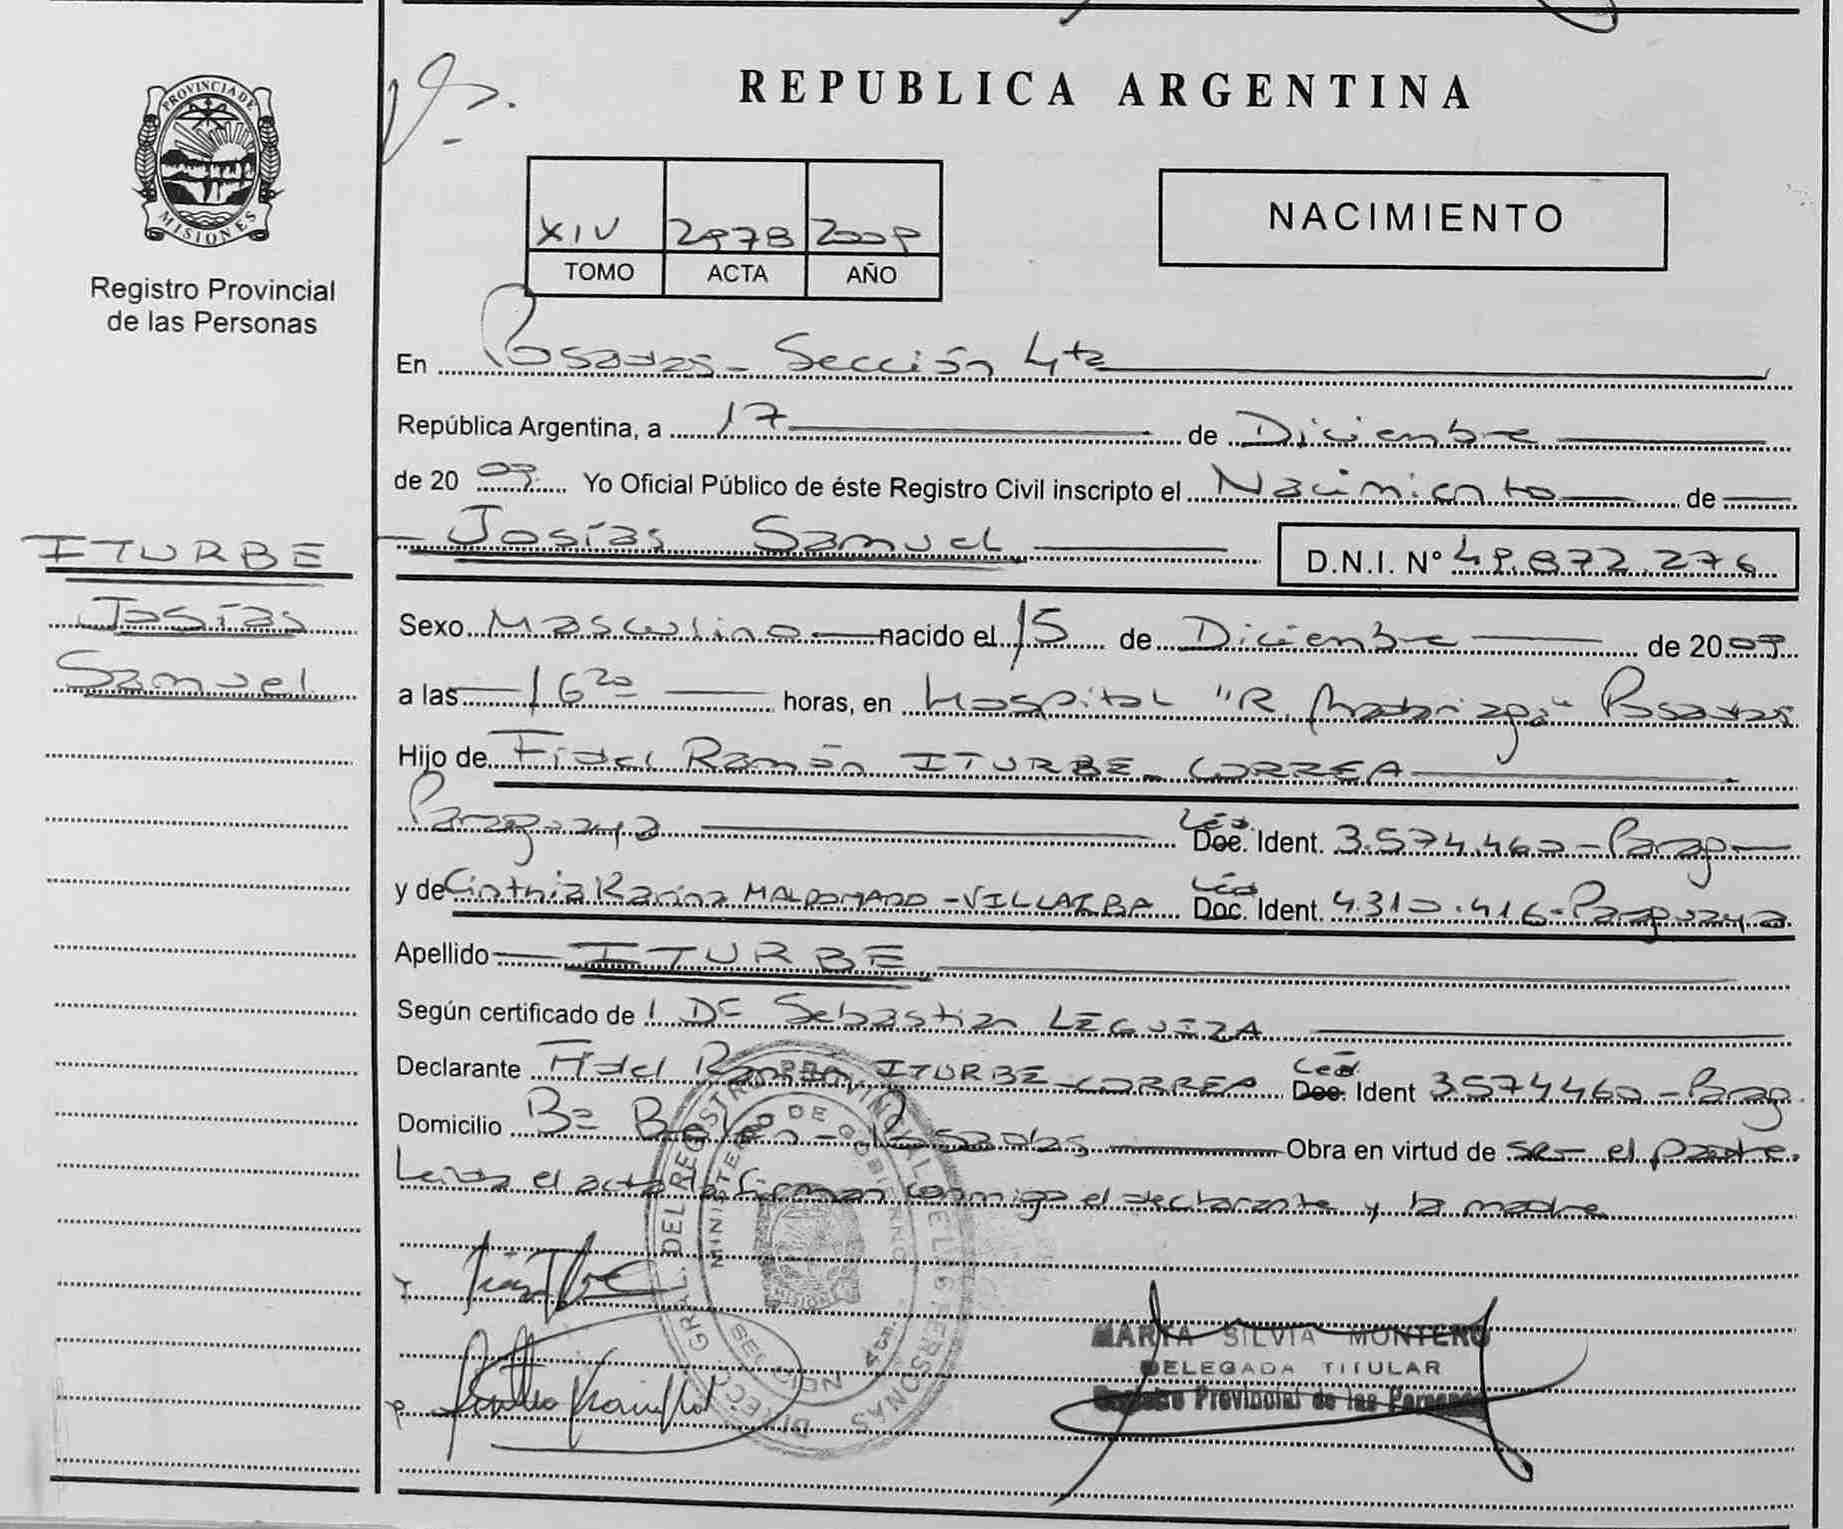 PROVINCIA DE
MISIONES
Registro Provincial
de las Personas
ITURBE
Josías
Samuel
REPUBLICA ARGENTINA
XIV 2978 2009
TOMO ACTA AÑO
NACIMIENTO
En Posadas - Sección 4ta
República Argentina, a 17 de Diciembre
de 2009. Yo Oficial Público de éste Registro Civil inscripto el Nacimiento de
Josías Samuel D.N.I. Nº 49.872.276
Sexo Masculino nacido el 15 de Diciembre de 2009
a las 16 20 horas, en Hospital "R. Madariaga" Posadas
Hijo de Fidel Ramón ITURBE - CORREA
Paraguaya Céd. Doc. Ident. 3.574.460 - Parag
y de Cinthia Karina MALDONADO - VILLALBA Céd. Doc. Ident. 4.310.416 - Paraguaya
Apellido ITURBE
Según certificado de 1 Dr Sebastian LEGUIZA
Declarante Fidel Ramón ITURBE - CORREA Céd. Doc. Ident 3574460 - Parag.
Domicilio Bº Belén - Posadas Obra en virtud de ser el padre.
Leída el acta la firman conmigo el declarante y la madre
DIRECC. GRAL. DEL REGISTRO PROVINCIAL DE LAS PERSONAS
MINISTERIO DE GOBIERNO
MISIONES
MARTA SILVIA MONTERO
DELEGADA TITULAR
Registro Provincial de las Personas